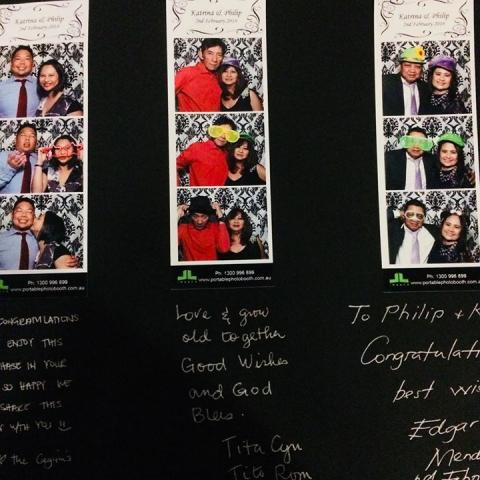 Katrina & Philip
2nd February 2013
Ph: 1300 996 899
www.portablephotobooth.com.au
CONGRATULATIONS
ENJOY THIS
PHASE IN YOUR
SO HAPPY WE
SHARE THIS
WITH YOU
the
Katrina & Philip
Ph: 1300 996 899
www.portablephotobooth.com.au
Love & grow
old together
Good Wishes
and God
Bless.
Tita Cyn
Tito Rom
Katrina & Philip
Ph: 1300 996 899
www.portablephotobooth.com.au
To Philip + K
Congratulati
best wis
Edgar
Mend